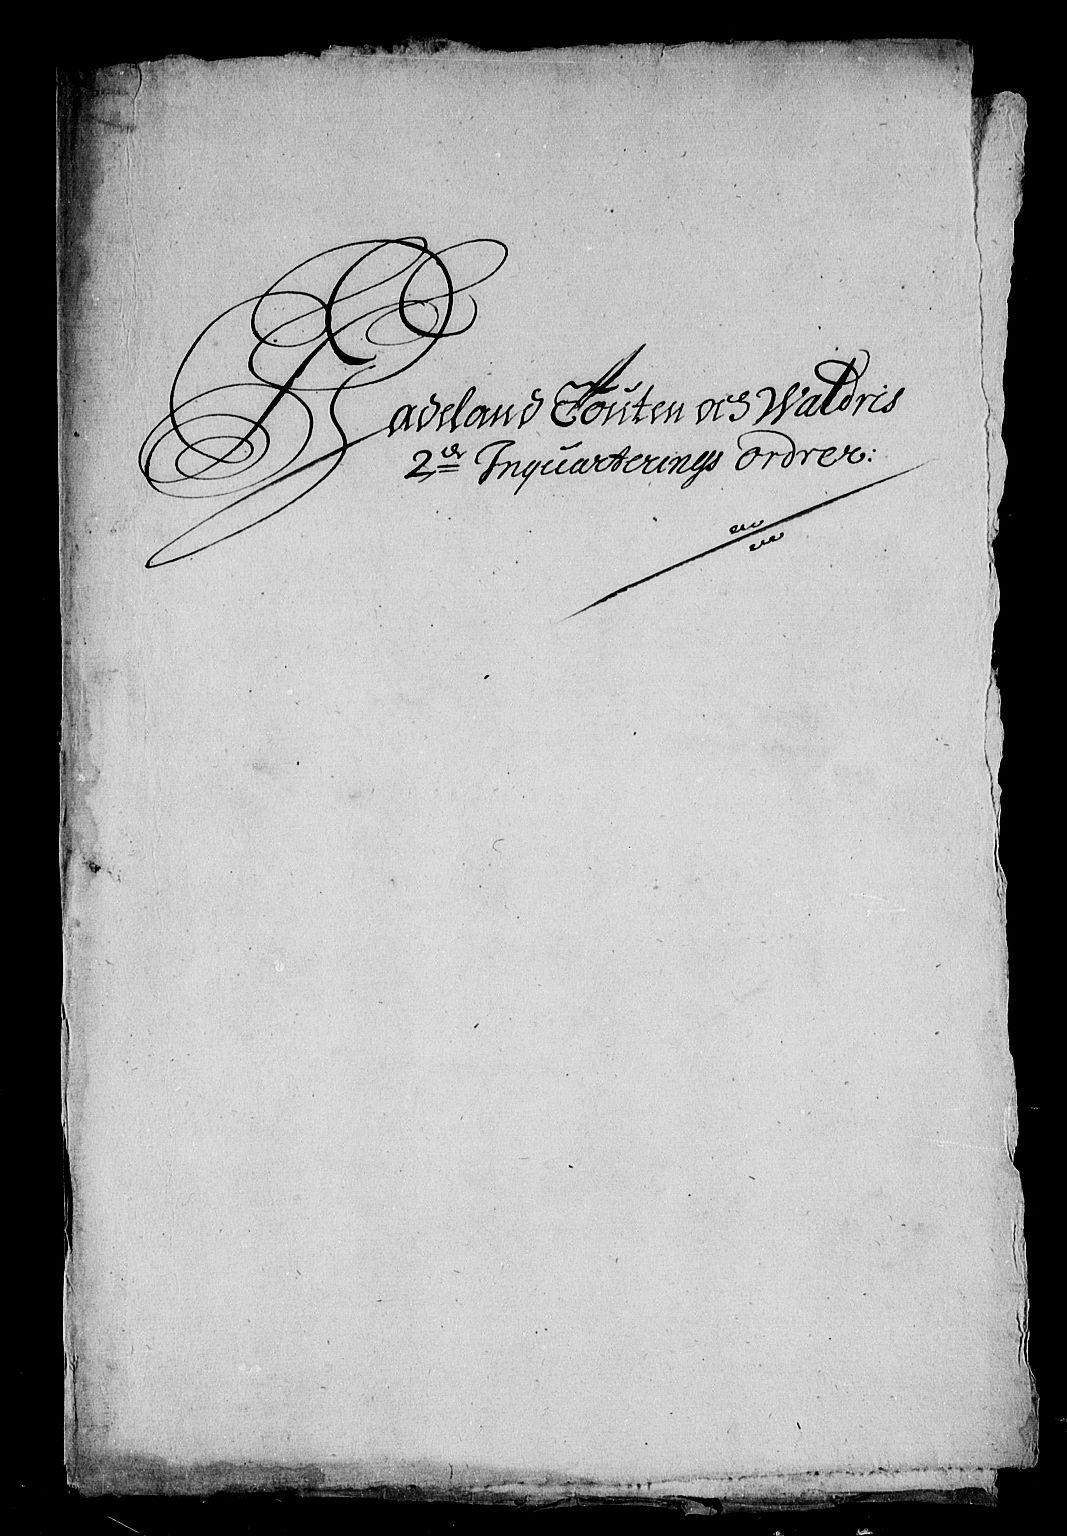 Hadeland Touten och Waldris
2de Inquarterings ordrer: